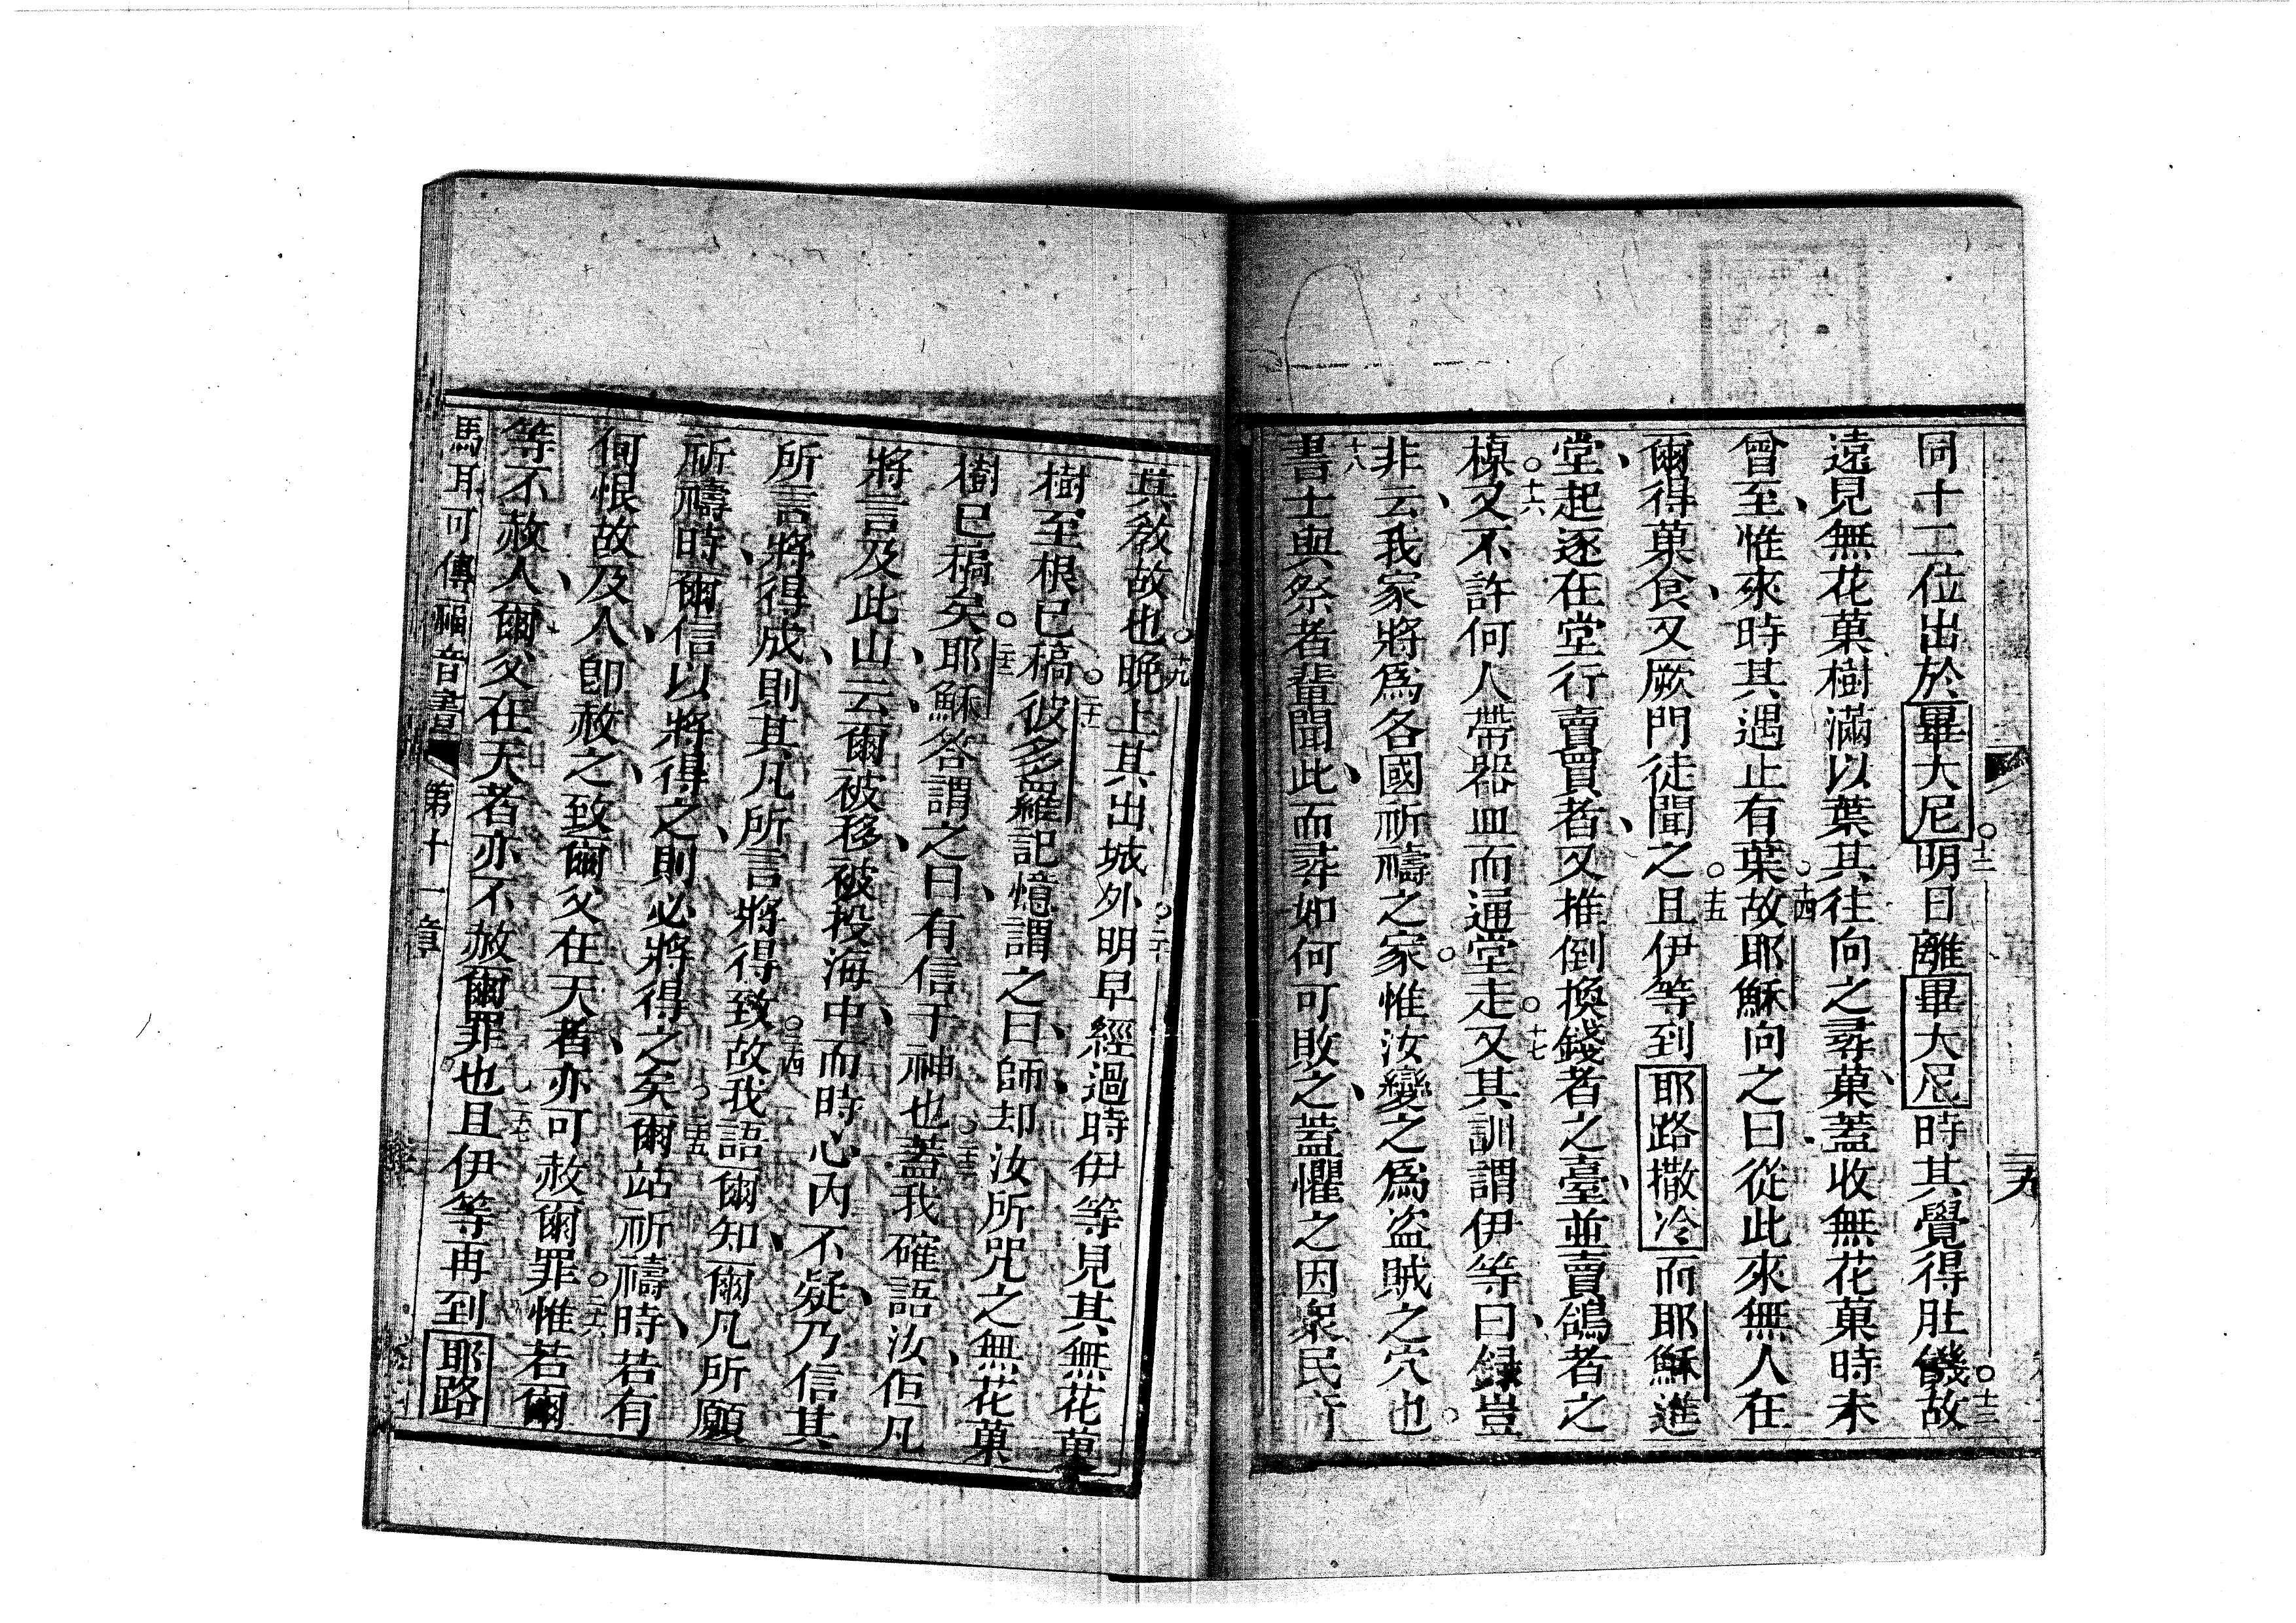 同十二位出於畢大尼。十二明日離畢大尼時其覺得肚饑故。十三
遠見無花菓樹滿以葉其往向之尋菓蓋收無花菓時未
曾至、惟來時其遇止有葉故。十四耶穌向之曰從此來無人在
爾得菓食、又厥門徒聞之。十五且伊等到耶路撒冷而耶穌進
堂、起逐在堂行賣買者、又推倒換錢者之臺、並賣鴿者之
槕。十六又不許何人帶器皿而通堂走。十七又其訓謂伊等曰、録豈
非、云我家將為各國祈禱之家。惟汝變之為盜賊之穴也。
十八書士與祭者輩聞此、而尋如何可敗之、蓋懼之因衆民奇
其敎故也。十九晚上其出城外。二十明早經過時伊等見其無花菓
樹至根已稿。二十一彼多羅記憶謂之曰、師却汝所咒之無花菓
樹已稿矣。二十二耶穌答謂之曰、有信于神也。二十三蓋我確語汝、佢凡
將言及此山、云、爾被移、被投海中、而時心內不疑、乃信其
所言將得成、則其凡所言將得致。二十四故我語爾知、爾凡所願
祈禱時、爾信以將得之、則必將得之矣。二十五爾站祈禱時、若有
何恨故及人、即赦之、致爾父在天者、亦可赦爾罪。二十六惟若爾
等不赦人、爾父在天者亦不赦爾罪也。二十七且伊等再到耶路
馬耳可傳福音書 第十一章